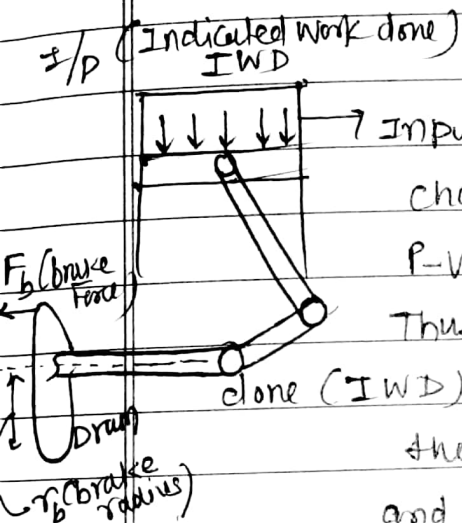 I/P (Indicated Work done)
IWD
Inpu
Cho
P-V
Fb (brake
Force)
Thu
done (IWD)
Drum
the
rb (brake
radius)
and